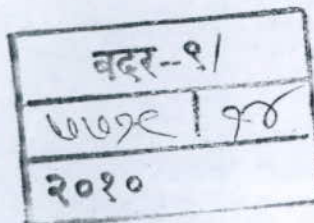 बदर--९/
७७१९ | १४
२०१०